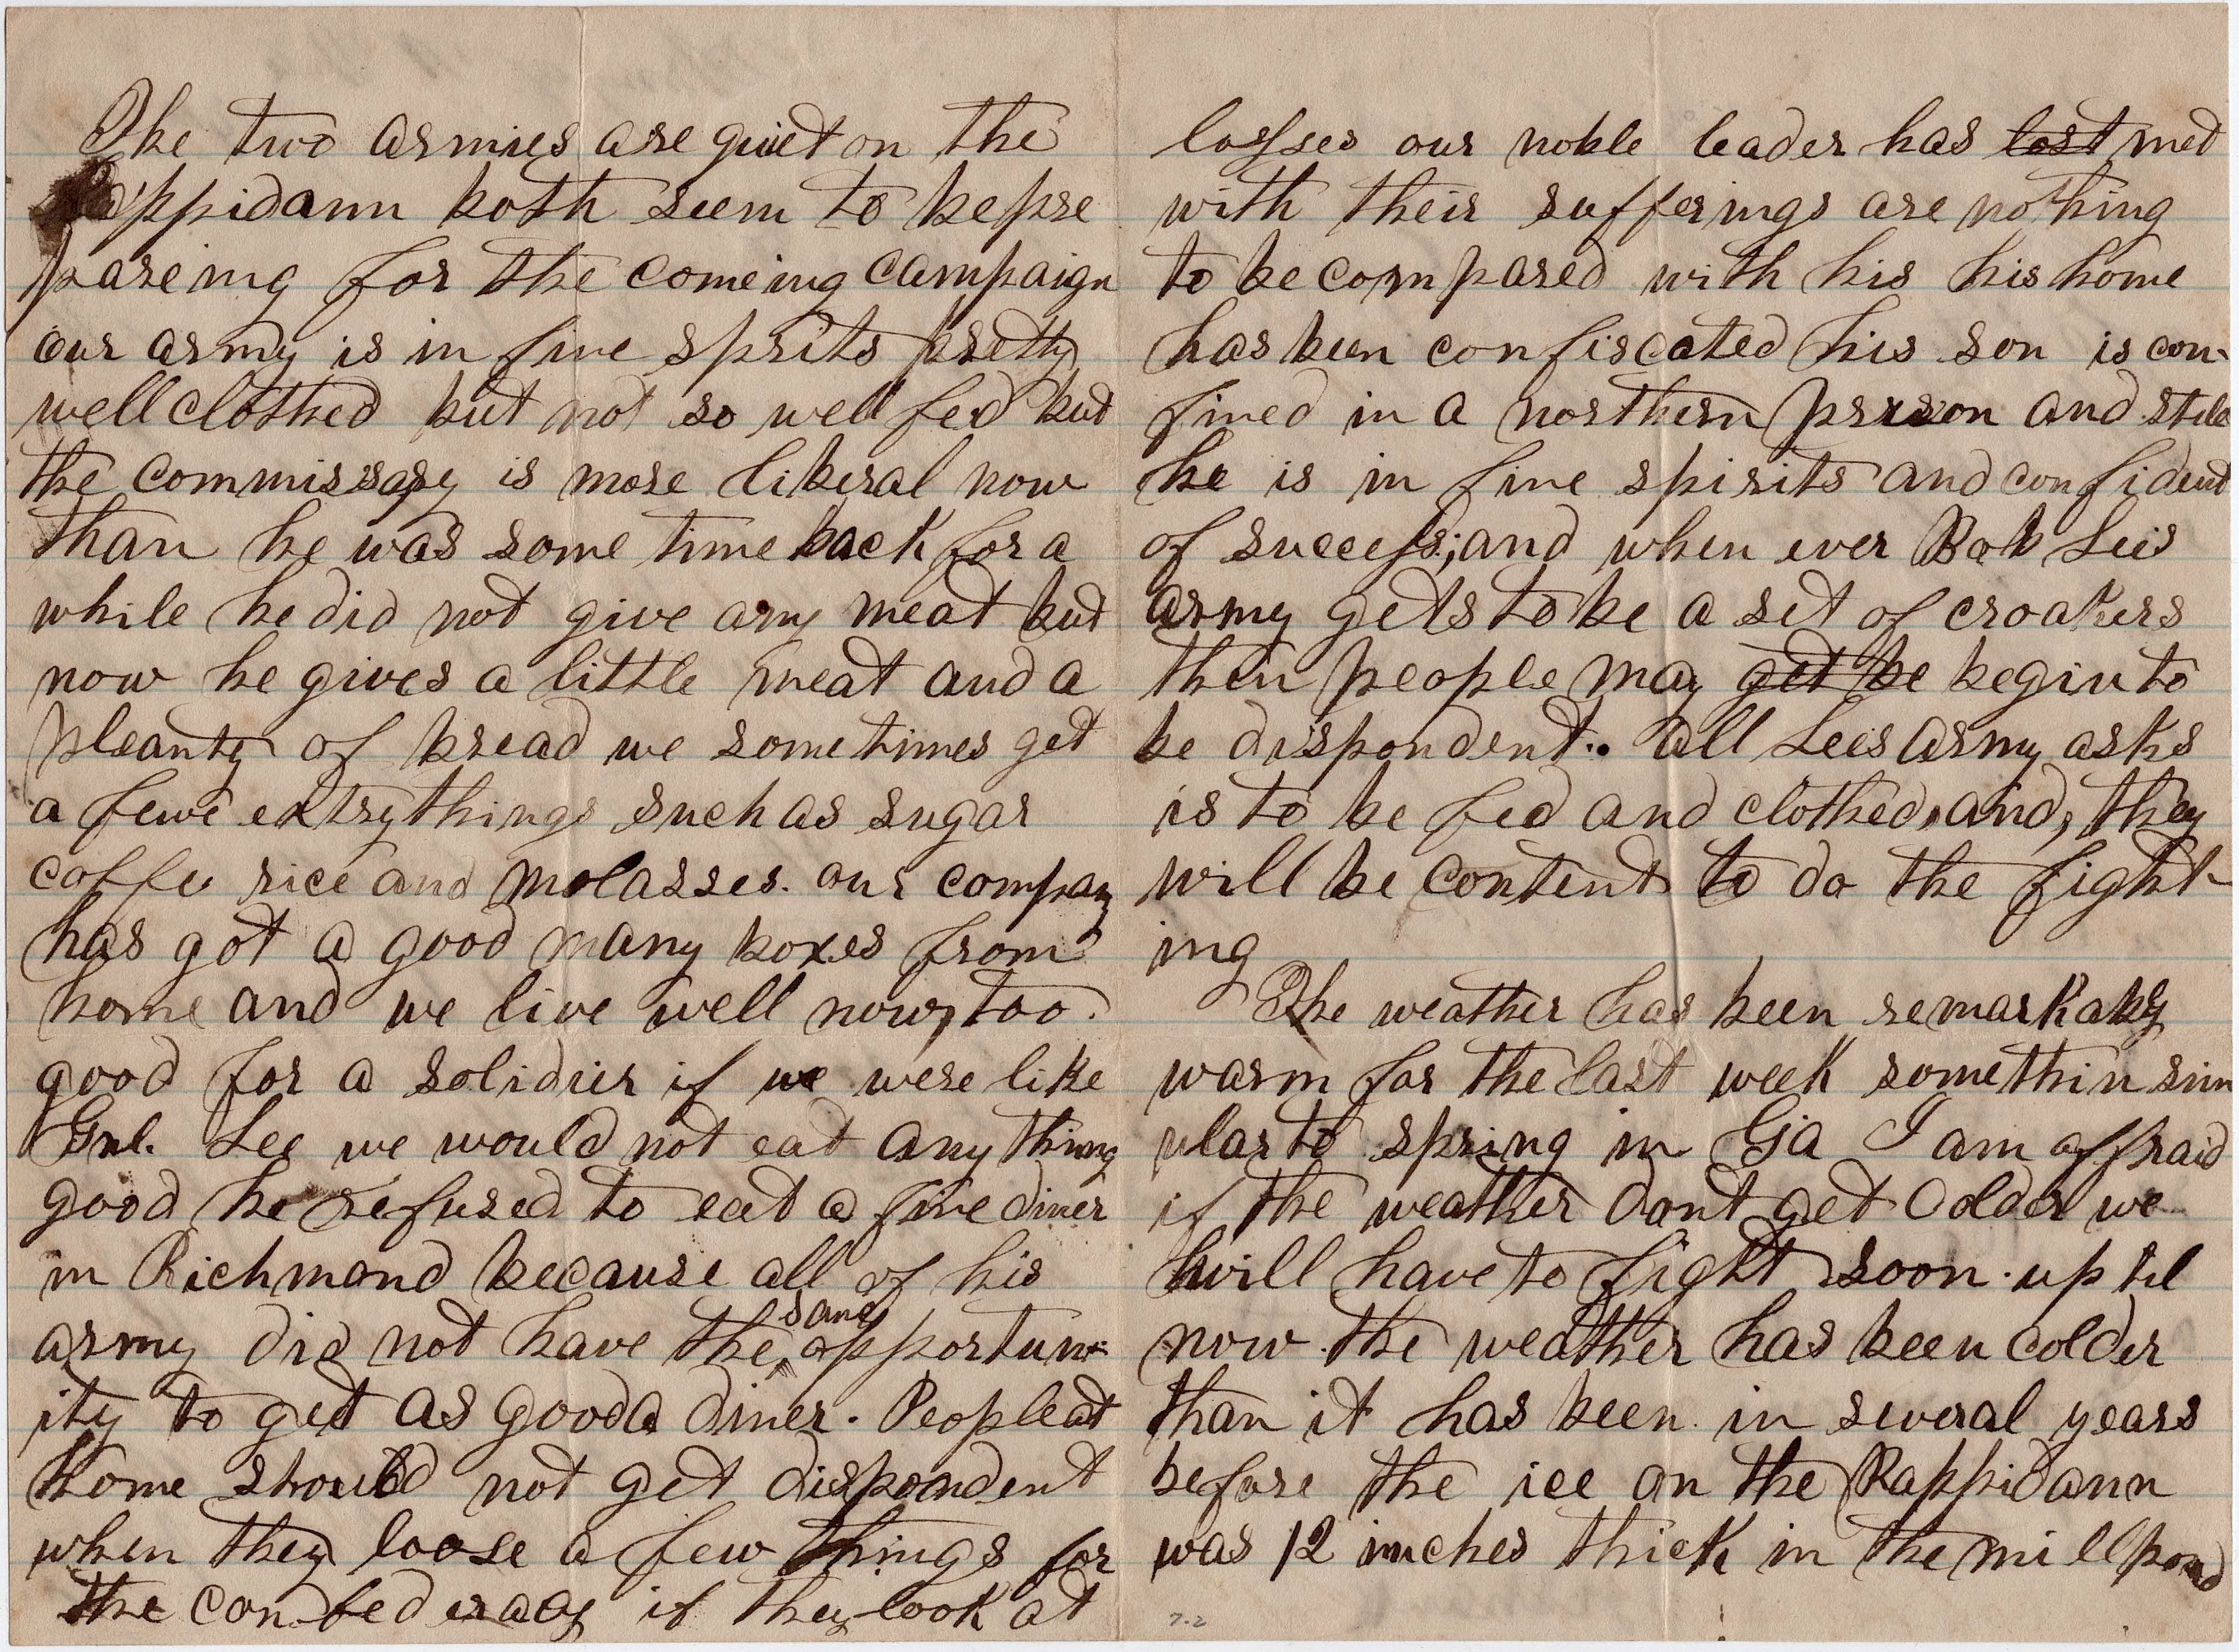 The two armies are quiet on the
Rappidann both seem to be pre
pareing for the comeing campaign
our army is in fine sprits pretty
well clothed but not so well fed but
the commissary is more liberal now
than he was some time back for a
while he did not give any meat but
now he gives a little meat and a
pleanty of bread we sometimes get
a fewe extrythings such as sugar
coffe rice and molasses. our company
has got a good many boxes from
home and we live well now, too.
good for a solidier if we were like
Gnl. Lee we would not eat anything
good he refused to eat a fine diner
in Richmond because all of his
army did not have the same opportun-
ity to get as good a diner. People at
home should not get dispondent
when they loose a few things for
the confederacy if they look at
losses our noble leader has lost met
with their sufferings are nothing
to be compared with his his home
has been confiscated his son is con-
fined in a northern prison and still
he is in fine spirits and confident
of success; and when ever Bob Lees
army gets to be a set of croakers
then people may get be begin to
be dispondent.. all Lees army asks
is to be fed and clothed, and, they
will be content to do the fight-
ing
The weather has been remarkably
warm for the last week somethin sim
ular to spring in Ga I am affraid
if the weather dont get colder we
will have to fight soon. up til
now the weather has been colder
than it has been in several years
before the ice on the Rappidann
was 12 inches thick in the millpond
7.2